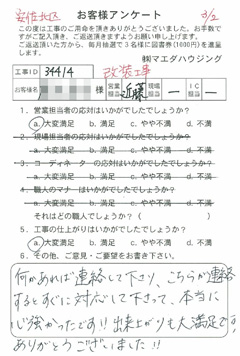 安佐北区 お客様アンケート 3/2
この度は工事のご用命を頂きありがとうございました。お手数で
すがご記入頂き、ご返送頂きますようお願い申し上げます。
ご返送頂いた方から、毎月抽選で3名様に図書券(1000円)を進呈
します。
㈱マエダハウジング
工事ID 34414 改装工事
お客様名 様 営業担当 近藤 現場担当 ー IC ー
1. 営業担当者の応対はいかがでしたでしょうか?
a.大変満足 b.満足 c.やや不満 d.不満
2. 現場担当者の応対はいかがでしたでしょうか?
a.大変満足 b.満足 c.やや不満 d.不満
3. コーディネーターの応対はいかがでしたでしょうか?
a.大変満足 b.満足 c.やや不満 d.不満
4. 職人のマナーはいかがでしたでしょうか?
a.大変満足 b.満足 c.やや不満 d.不満
それはどの職人でしょうか?( )
5. 工事の仕上がりはいかがでしたでしょうか?
a.大変満足 b.満足 c.やや不満 d.不満
6. その他、ご意見・ご要望をお書き下さい。
何かあれば連絡して下さり、こちらが連絡
するとすぐに対応して下さって、本当に
心強かったです!!出来上がりも大満足です。
ありがとうございました!!